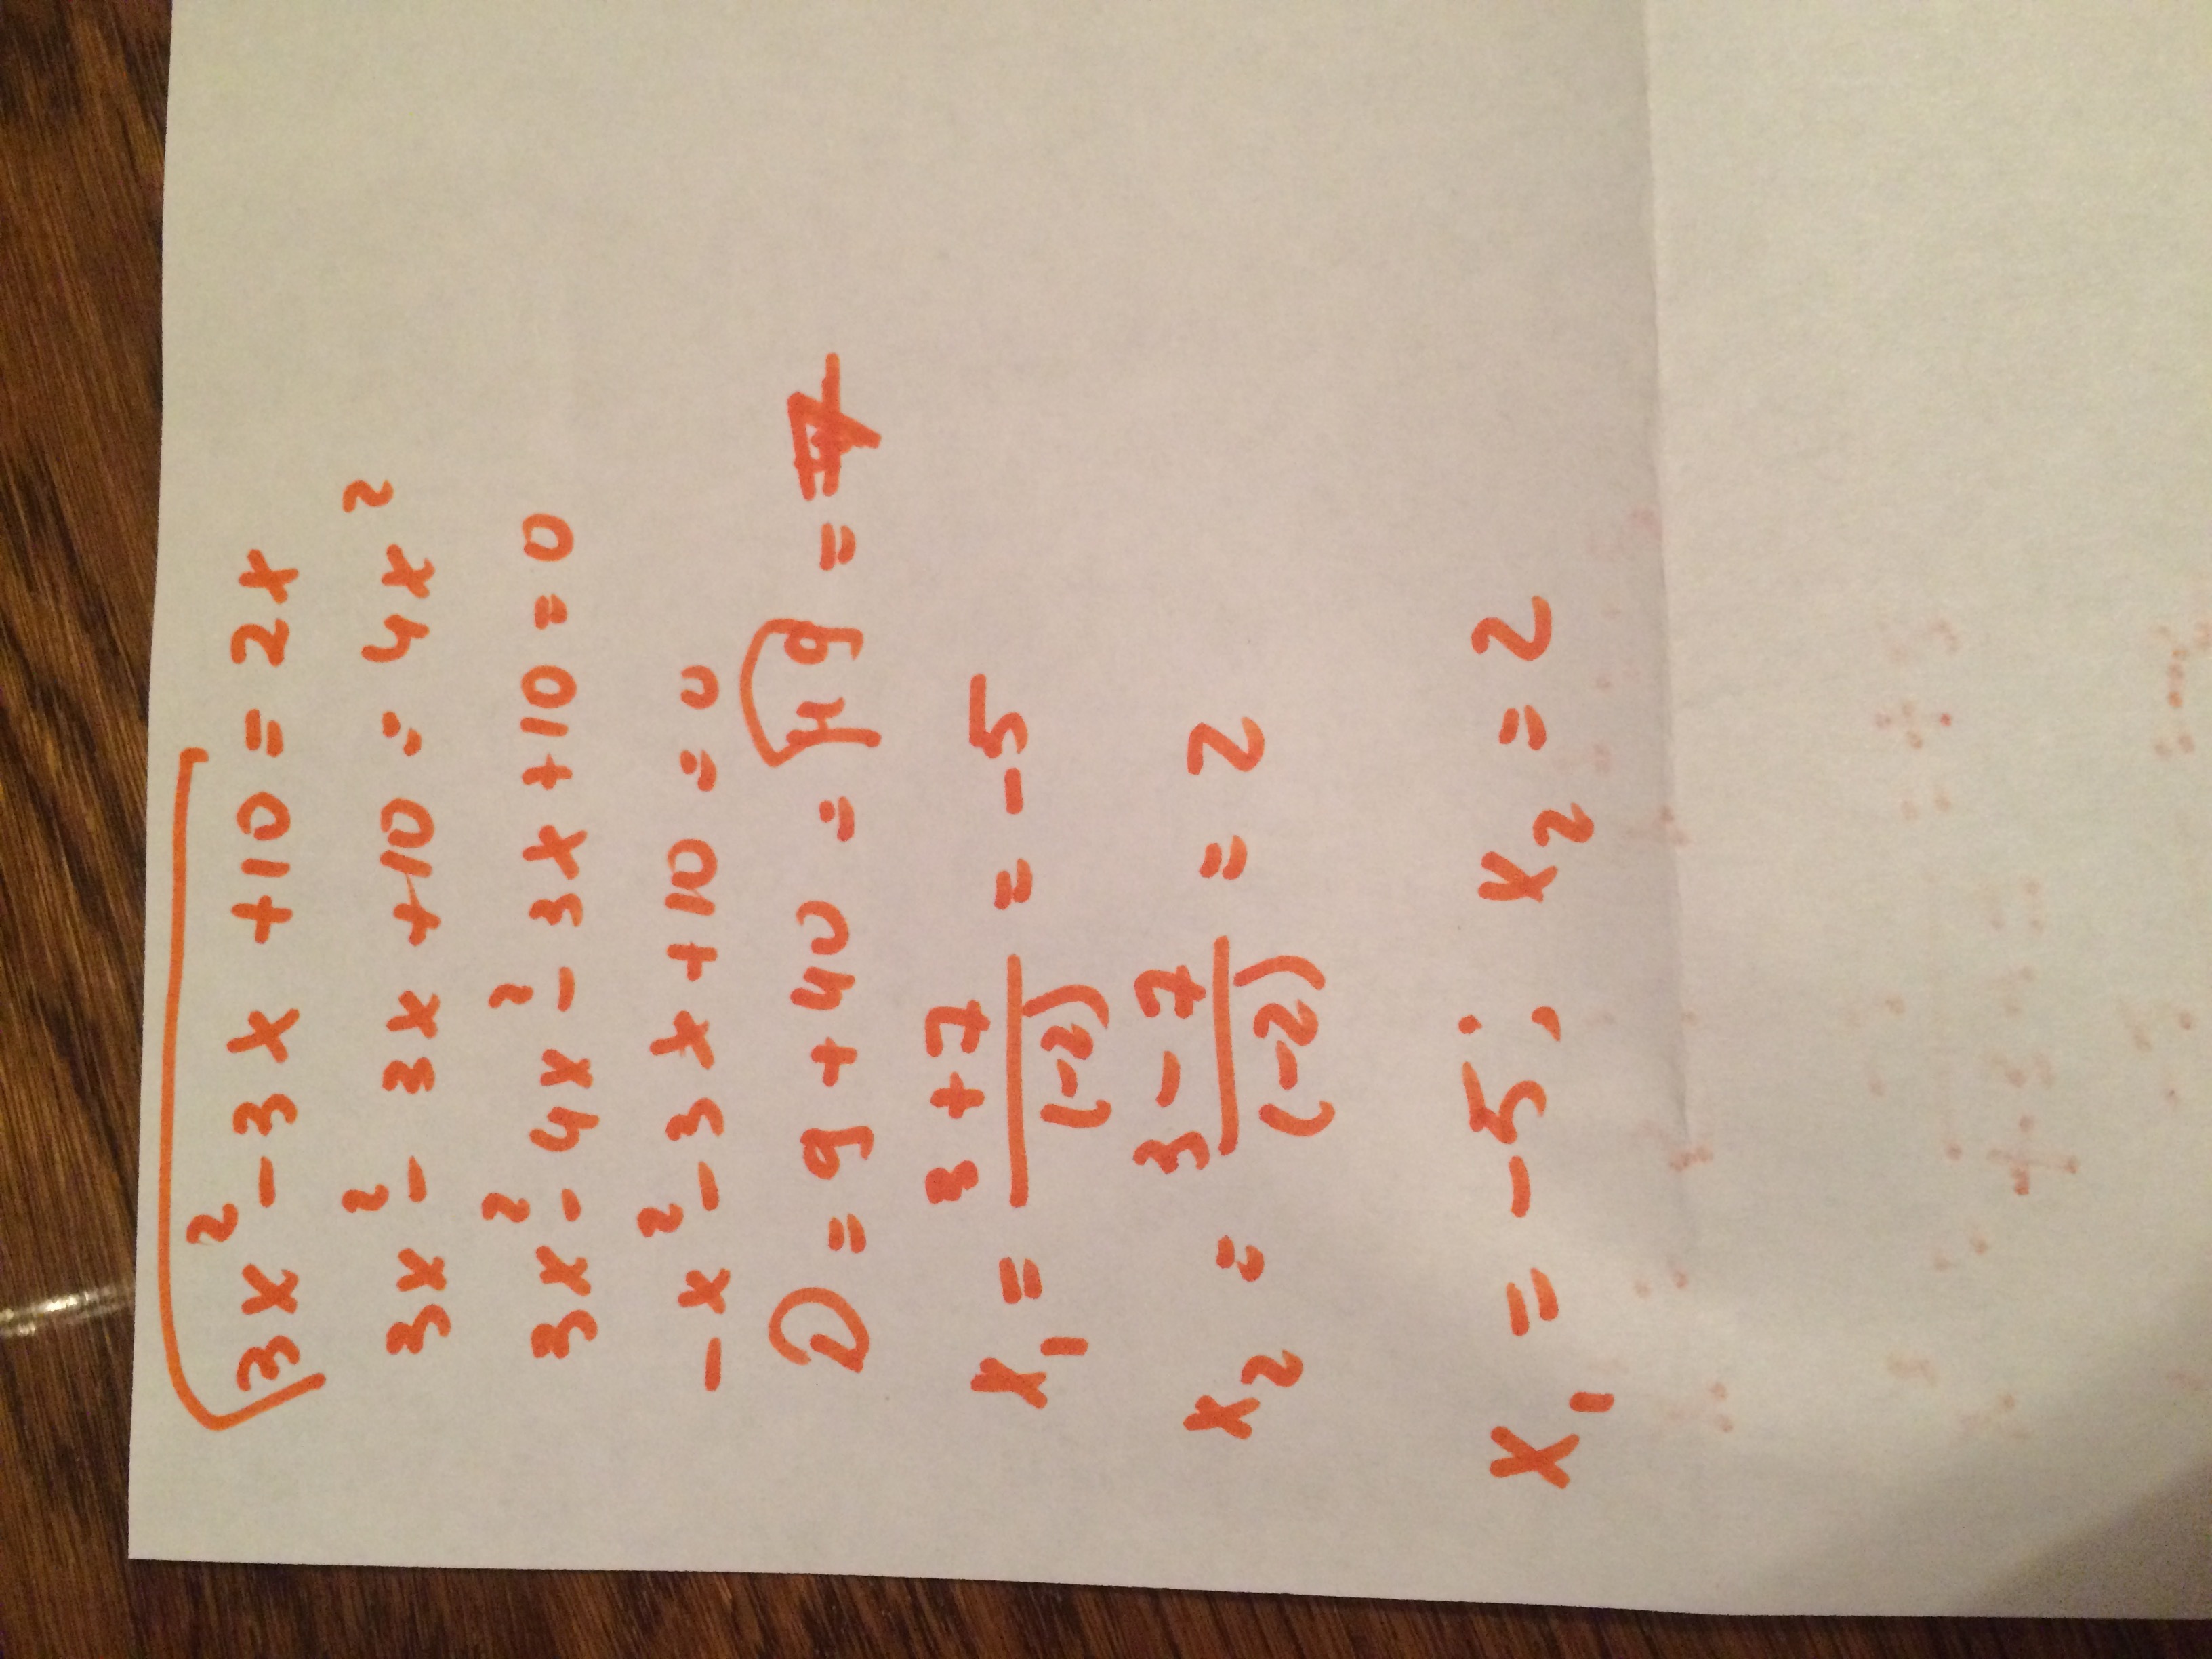 √(3x² - 3x + 10) = 2x
3x² - 3x + 10 = 4x²
3x² - 4x² - 3x + 10 = 0
-x² - 3x + 10 = 0
D = 9 + 40 = √49 =
x₁ = (3 + 7)/(-2) = -5
x₂ = (3 - 7)/(-2) = 2
x₁ = -5; x₂ = 2